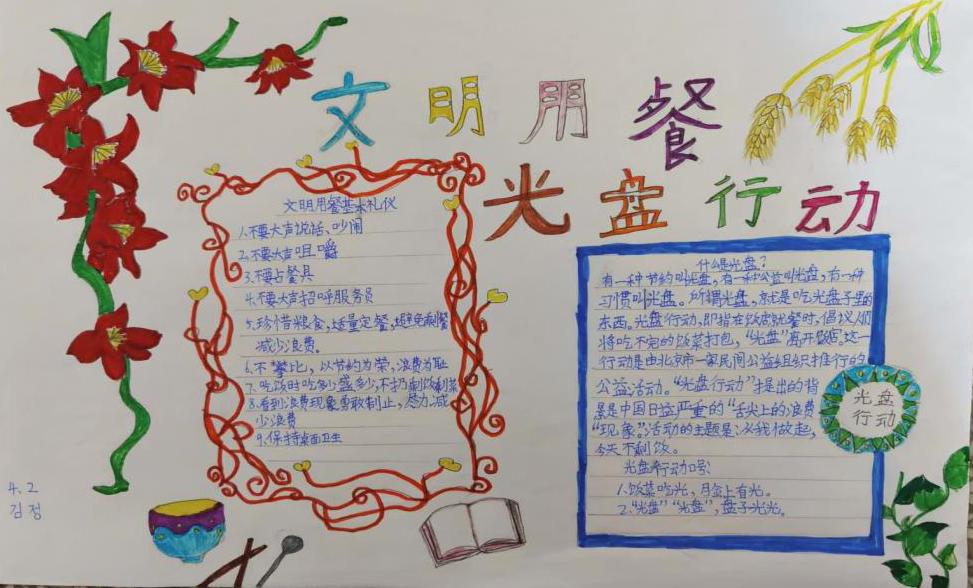 文明用餐
光盘行动
文明用餐基本礼仪
1.不要大声说话、吵闹
2.不要大声咀嚼
3.不要占餐具
4.不要大声招呼服务员
5.珍惜粮食,适量定餐,避免剩餐
减少浪费。
6.不攀比,以节约为荣,浪费为耻
7.吃饭时吃多少盛多少,不扔剩饭剩菜
8.看到浪费现象勇敢制止,尽力减
少浪费
9.保持桌面卫生
什么是光盘?
有一种节约叫光盘,有一种公益叫光盘,有一种
习惯叫光盘。所谓光盘,就是吃光盘子里的
东西。光盘行动,即指在饭店就餐时,倡议人们
将吃不完的饭菜打包,“光盘”离开饭店,这一
行动是由北京市一家民间公益组织才推行的
公益活动。“光盘行动”才提出的背
景是中国日益严重的“舌尖上的浪费
“现象”。活动的主题是:从我做起,
今天不剩饭。
光盘行动口号:
1.饭菜吃光,月盆上有光。
2.“光盘”“光盘”,盘子光光。
光盘
行动
4.2
김정